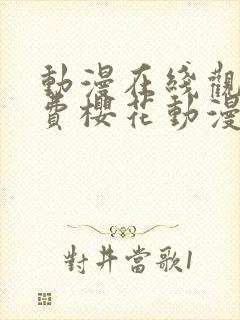 動漫在綫觀
費櫻花動漫
對井當歌1